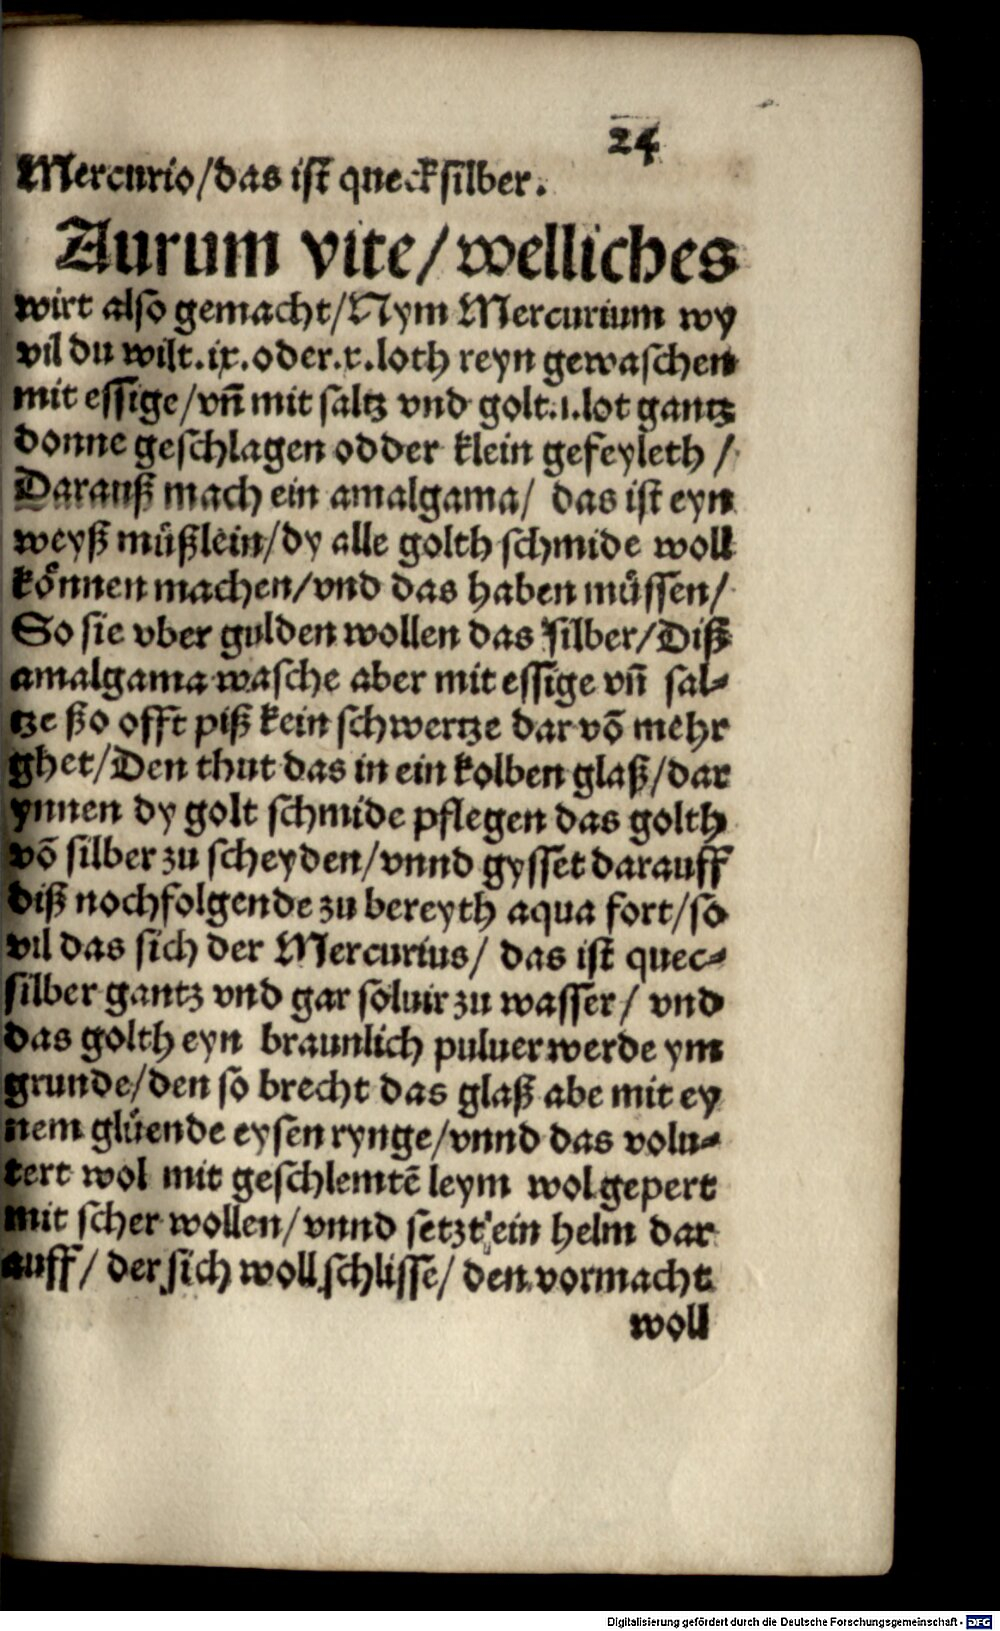 24
Mercurio/das ist quecksilber.
Aurum vite/welliches
wirt also gemacht/Nym Mercurium wy
vil du wilt.ix.oder.x.loth reyn gewaschen
mit essige/vñ mit saltz vnd golt.i.lot gantz
donne geschlagen odder klein gefeyleth/
Darauß mach ein amalgama/ das ist eyn
weyß můßlein/dy alle golth schmide woll
kőnnen machen/vnd das haben műssen/
So sie vber gulden wollen das silber/Diß
amalgama wasche aber mit essige vñ sal⸗
tze ßo offt piß kein schwertze dar võ mehr
ghet/Den thut das in ein kolben glaß/dar
ynnen dy golt schmide pflegen das golth
võ silber zu scheyden/vnnd gysset darauff
diß nochfolgende zu bereyth aqua fort/so
vil das sich der Mercurius/ das ist quec⸗
silber gantz vnd gar soluir zu wasser/ vnd
das golth eyn braunlich puluer werde ym
grunde/den so brecht das glaß abe mit ey
nem glűende eysen rynge/vnnd das volu⸗
tert wol mit geschlemtẽ leym wol gepert
mit scher wollen/vnnd setzt ein helm dar
auff/ der sich woll schlisse/ den vormacht
woll
Digitalisierung gefördert durch die Deutsche Forschungsgemeinschaft - DFG